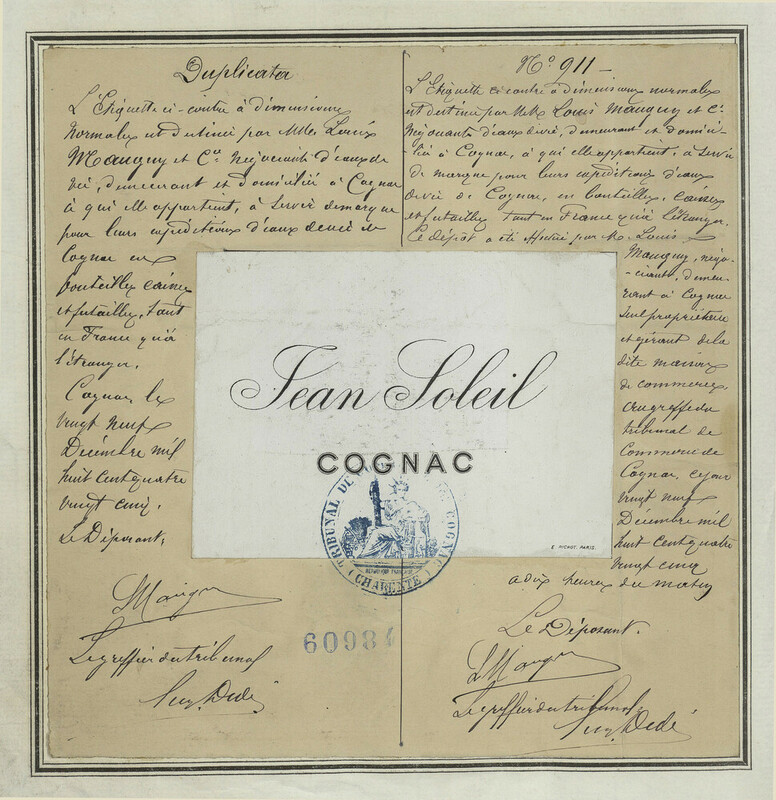 Duplicata
L'Etiquette ci-contre à dimensions
normales est destinée par MMrs Louis
Mauguy et Cie négociants d'eaux de
vie, demeurant et domiciliés à Cognac
à qui elle appartient, à servir de marque
pour leurs expéditions d'eaux de vie de
Cognac en
bouteilles, caisses
et futailles, tant
en France qu'à
l'étranger.
Cognac le
vingt neuf
Décembre mil
huit cent quatre
vingt cinq.
Le Déposant,
Le greffier du tribunal
No 911
L'Etiquette ci contre à dimensions normales
est destinée par MM. Louis Mauguy et Cie
Négociants d'eaux de vie, demeurant et domici-
liés à Cognac, à qui elle appartient, à servir
de marque pour leurs expéditions d'eaux
de vie de Cognac, en bouteilles, caisses
et futailles tant en France qu'à l'étranger.
Ce dépôt a été effectué par M. Louis
Mauguy, négo-
ciant, demeu-
rant à Cognac
seul propriétaire
et gérant de la
dite maison
de commerce,
au greffe du
tribunal de
Commerce de
Cognac, ce jour
vingt neuf
Décembre mil
huit cent quatre
vingt cinq
à dix heures du matin
Le Déposant.
Le greffier du tribunal
Jean Soleil
COGNAC
E. PICHOT. PARIS.
TRIBUNAL DE COGNAC
REPUBLIQUE FRANÇAISE
(CHARENTE)
60984